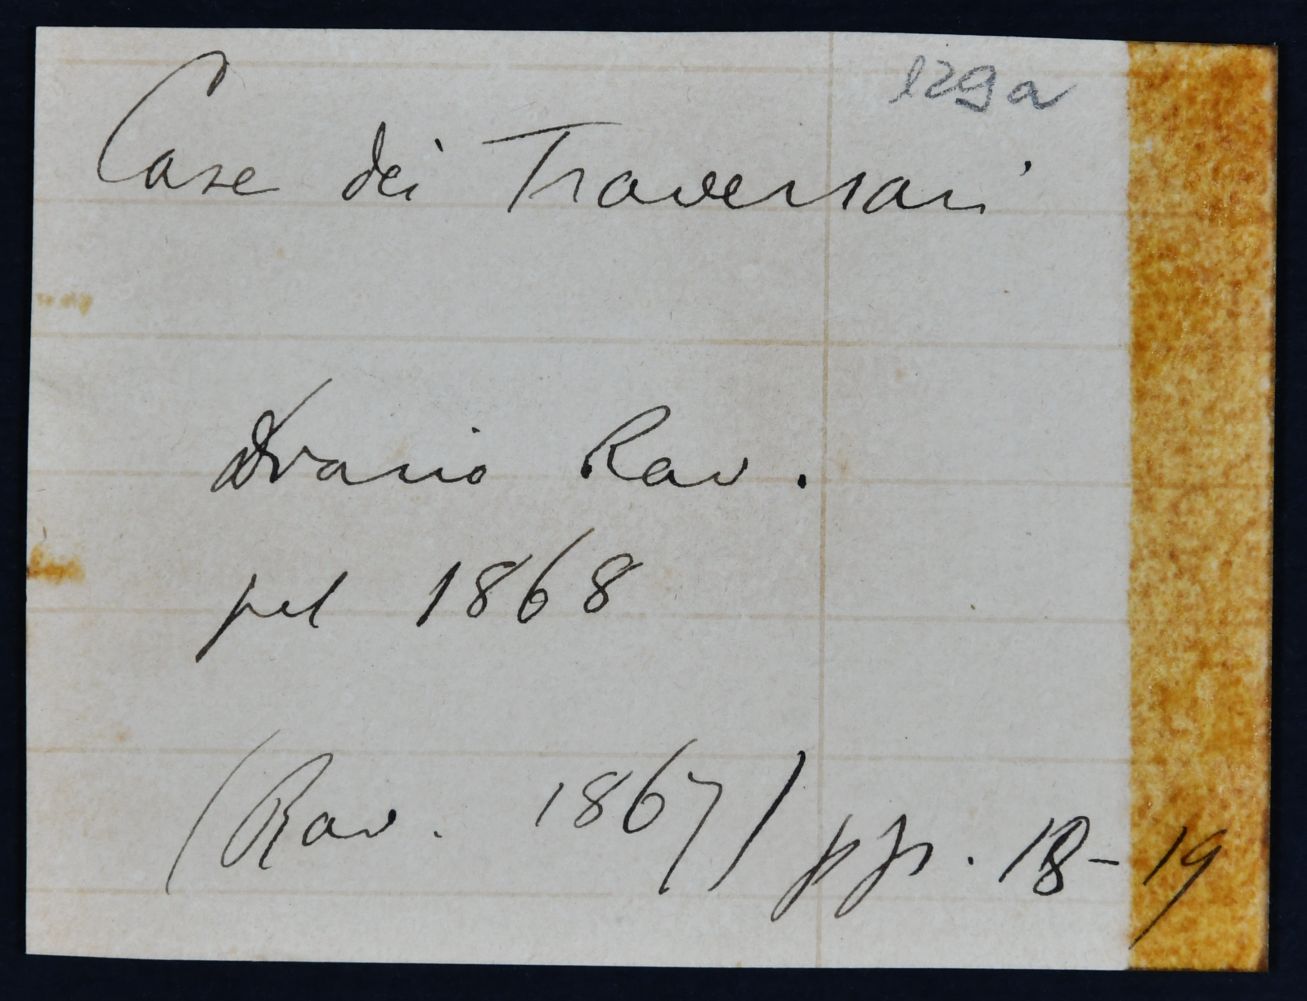 129a
Case dei Traversari
Diario Rav.
pel 1868
(Rav. 1867) pp. 18-19